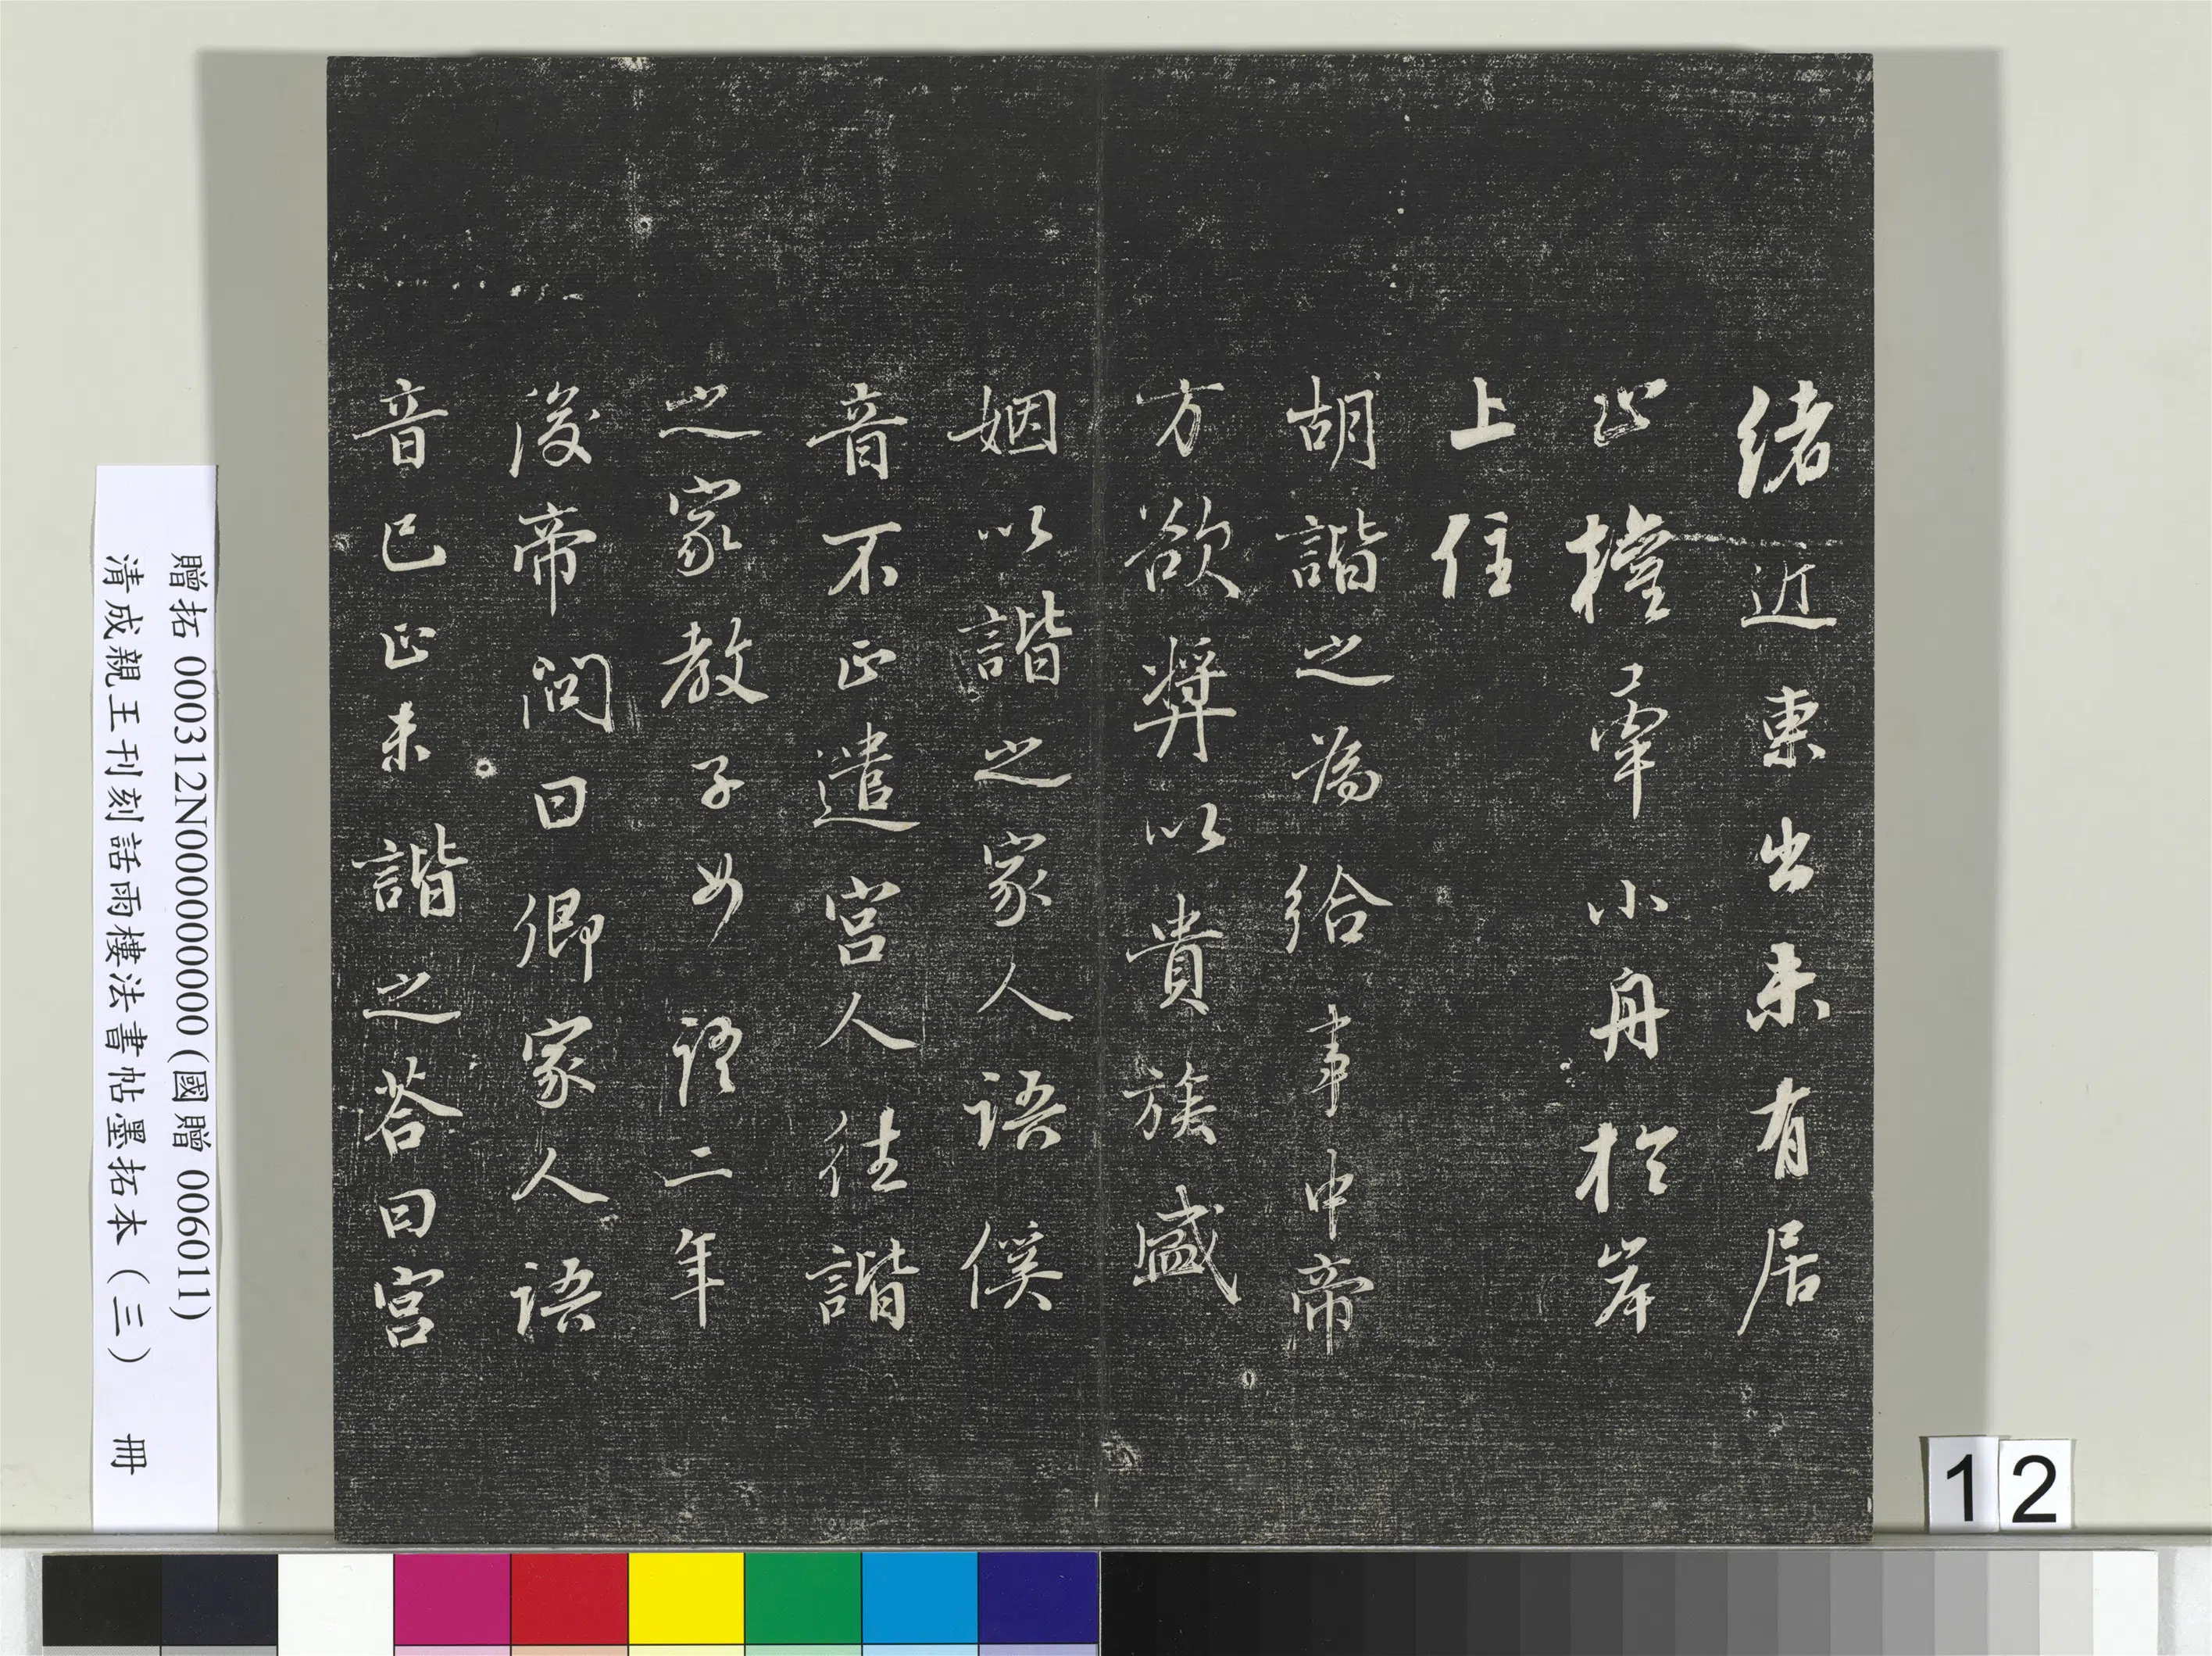 緒近東出未有居
止權牽小舟於岸
上住
胡諧之為給事中帝
方欲奬以貴族盛
姻以諧之家人語傒
音不正遣宮人往諧
之家教子女語二年
後帝問曰卿家人語
音已正未諧之荅曰宮
贈拓 000312N000000000 (國贈 006011)
清成親王刊刻話雨樓法書帖墨拓本(三) 冊
12